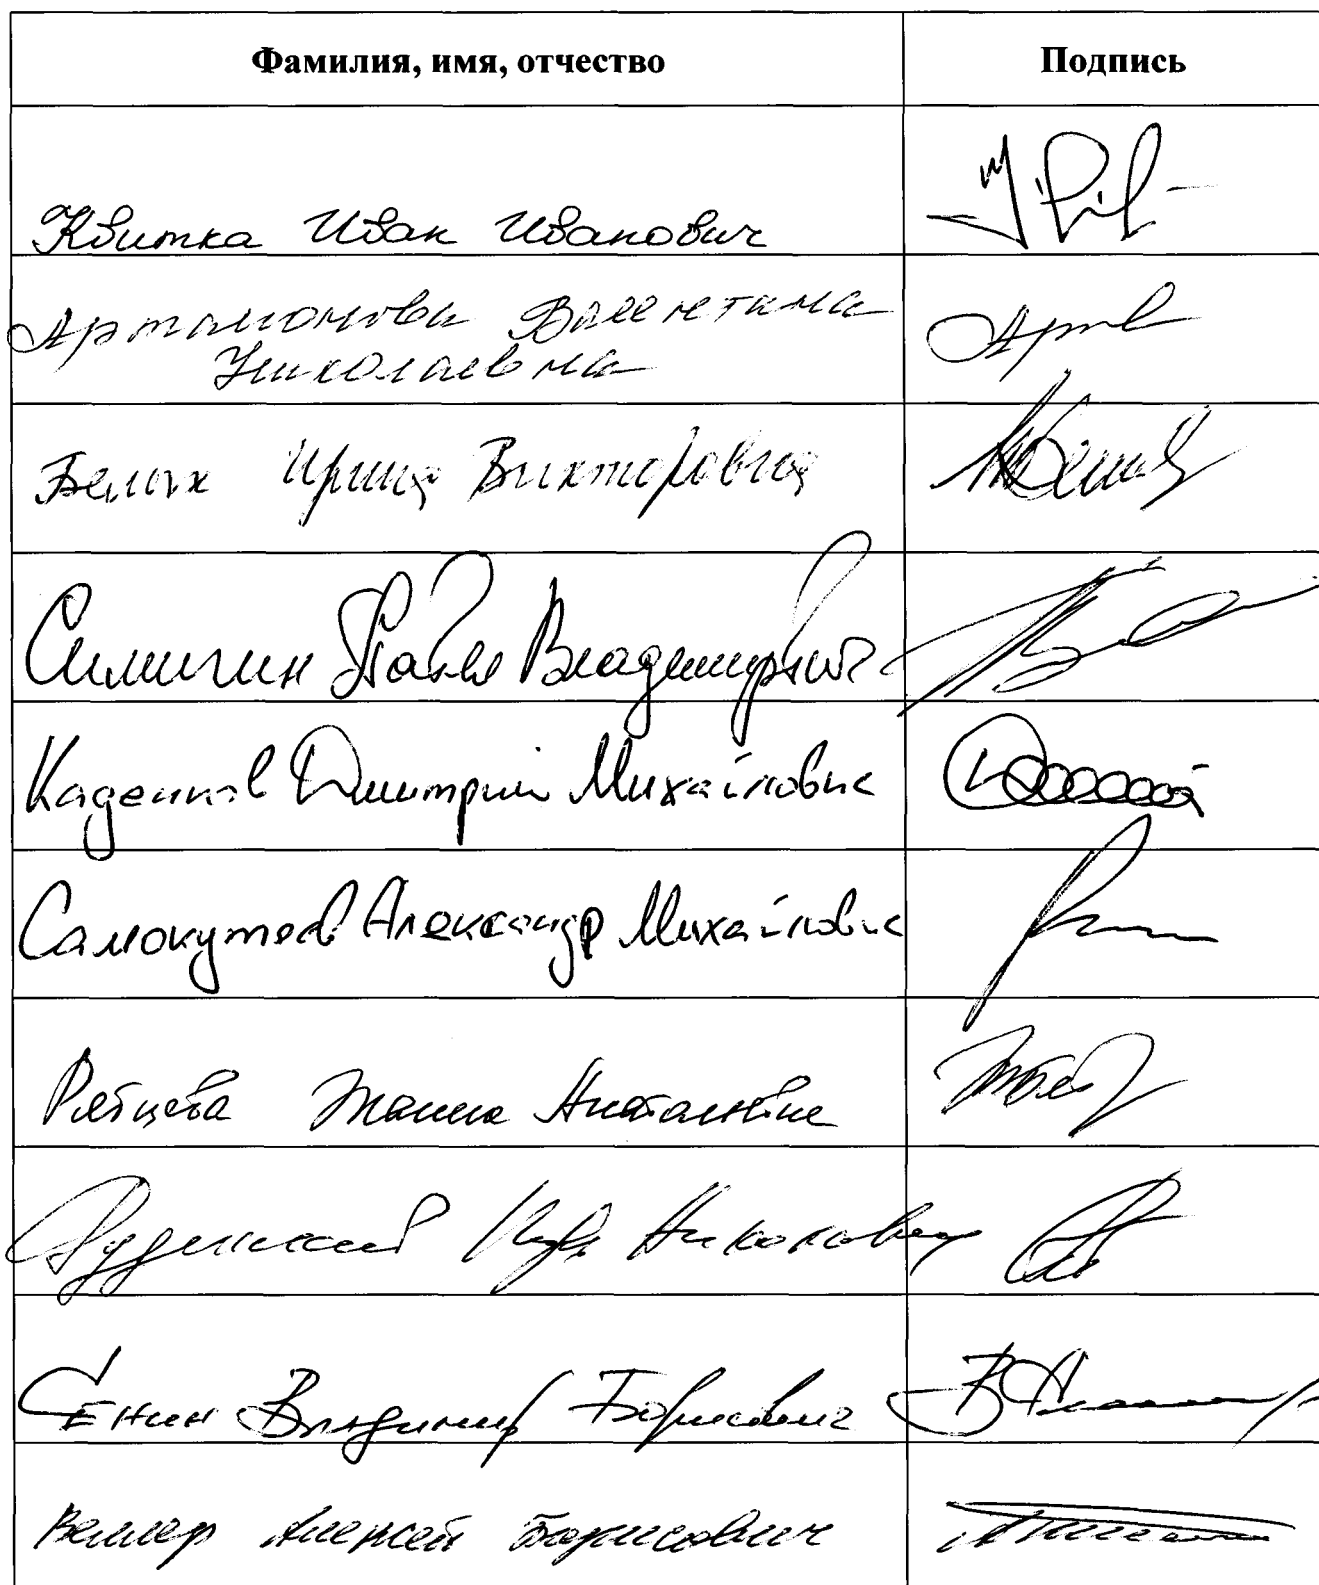 Фамилия, имя, отчество Подпись
Квитка Иван Иванович
Артамонова Валентина
Николаевна
Белых Ирина Викторовна
Симигин Павел Владимирович
Каденков Дмитрий Михайлович
Самокутяев Александр Михайлович
Рябцева Жанна Анатольевна
Игорь Николаевич
Сенин Владимир Борисович
Веллер Алексей Борисович